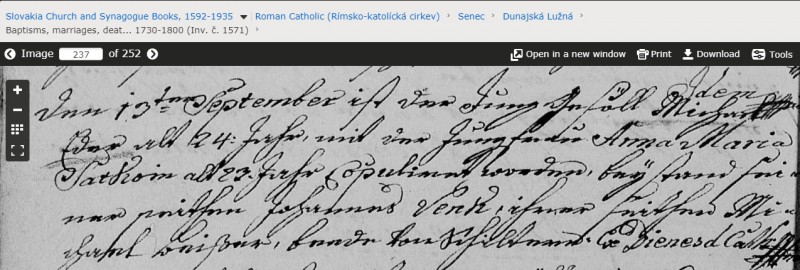 Slovakia Church and Synagogue Books, 1592-1935 Roman Catholic (Rímsko-katolícká cirkev) Senec Dunajská Lužná
Baptisms, marriages, deat... 1730-1800 (Inv. č. 1571)
Image 237 of 252 Open in a new window Print Download Tools
Idem
Den 13ten September ist der Jung Gesöll Michael
Eder alt 24: Jahr, mit der Jungfrau Anna Maria
alt 23: Jahr Copuliret worden, beystand sei-
ner seithen Johannes Venk, ihrer seithen Mi-
chael Beißer, beede von Schiltern. Ex